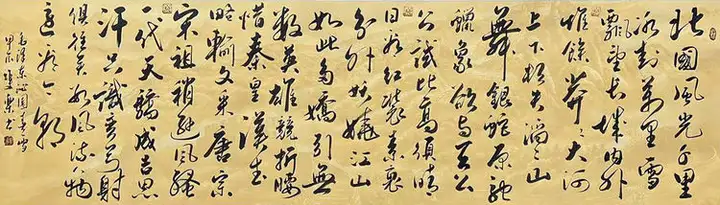 北國風光千里
冰封萬里雪
飄望長城内外
惟餘莽〻大河
上下頓失滔〻山
舞銀蛇原馳
蠟象欲与天公
試比高須晴
日看紅裝素裹
分外妖嬈江山
如此多嬌引無
數英雄競折腰
惜秦皇漢武
略輸文采唐宗
宋祖稍遜風騷
一代天驕成吉思
汗只識彎弓射
俱往矣數風流人物
還看今朝
毛澤東沁園春雪